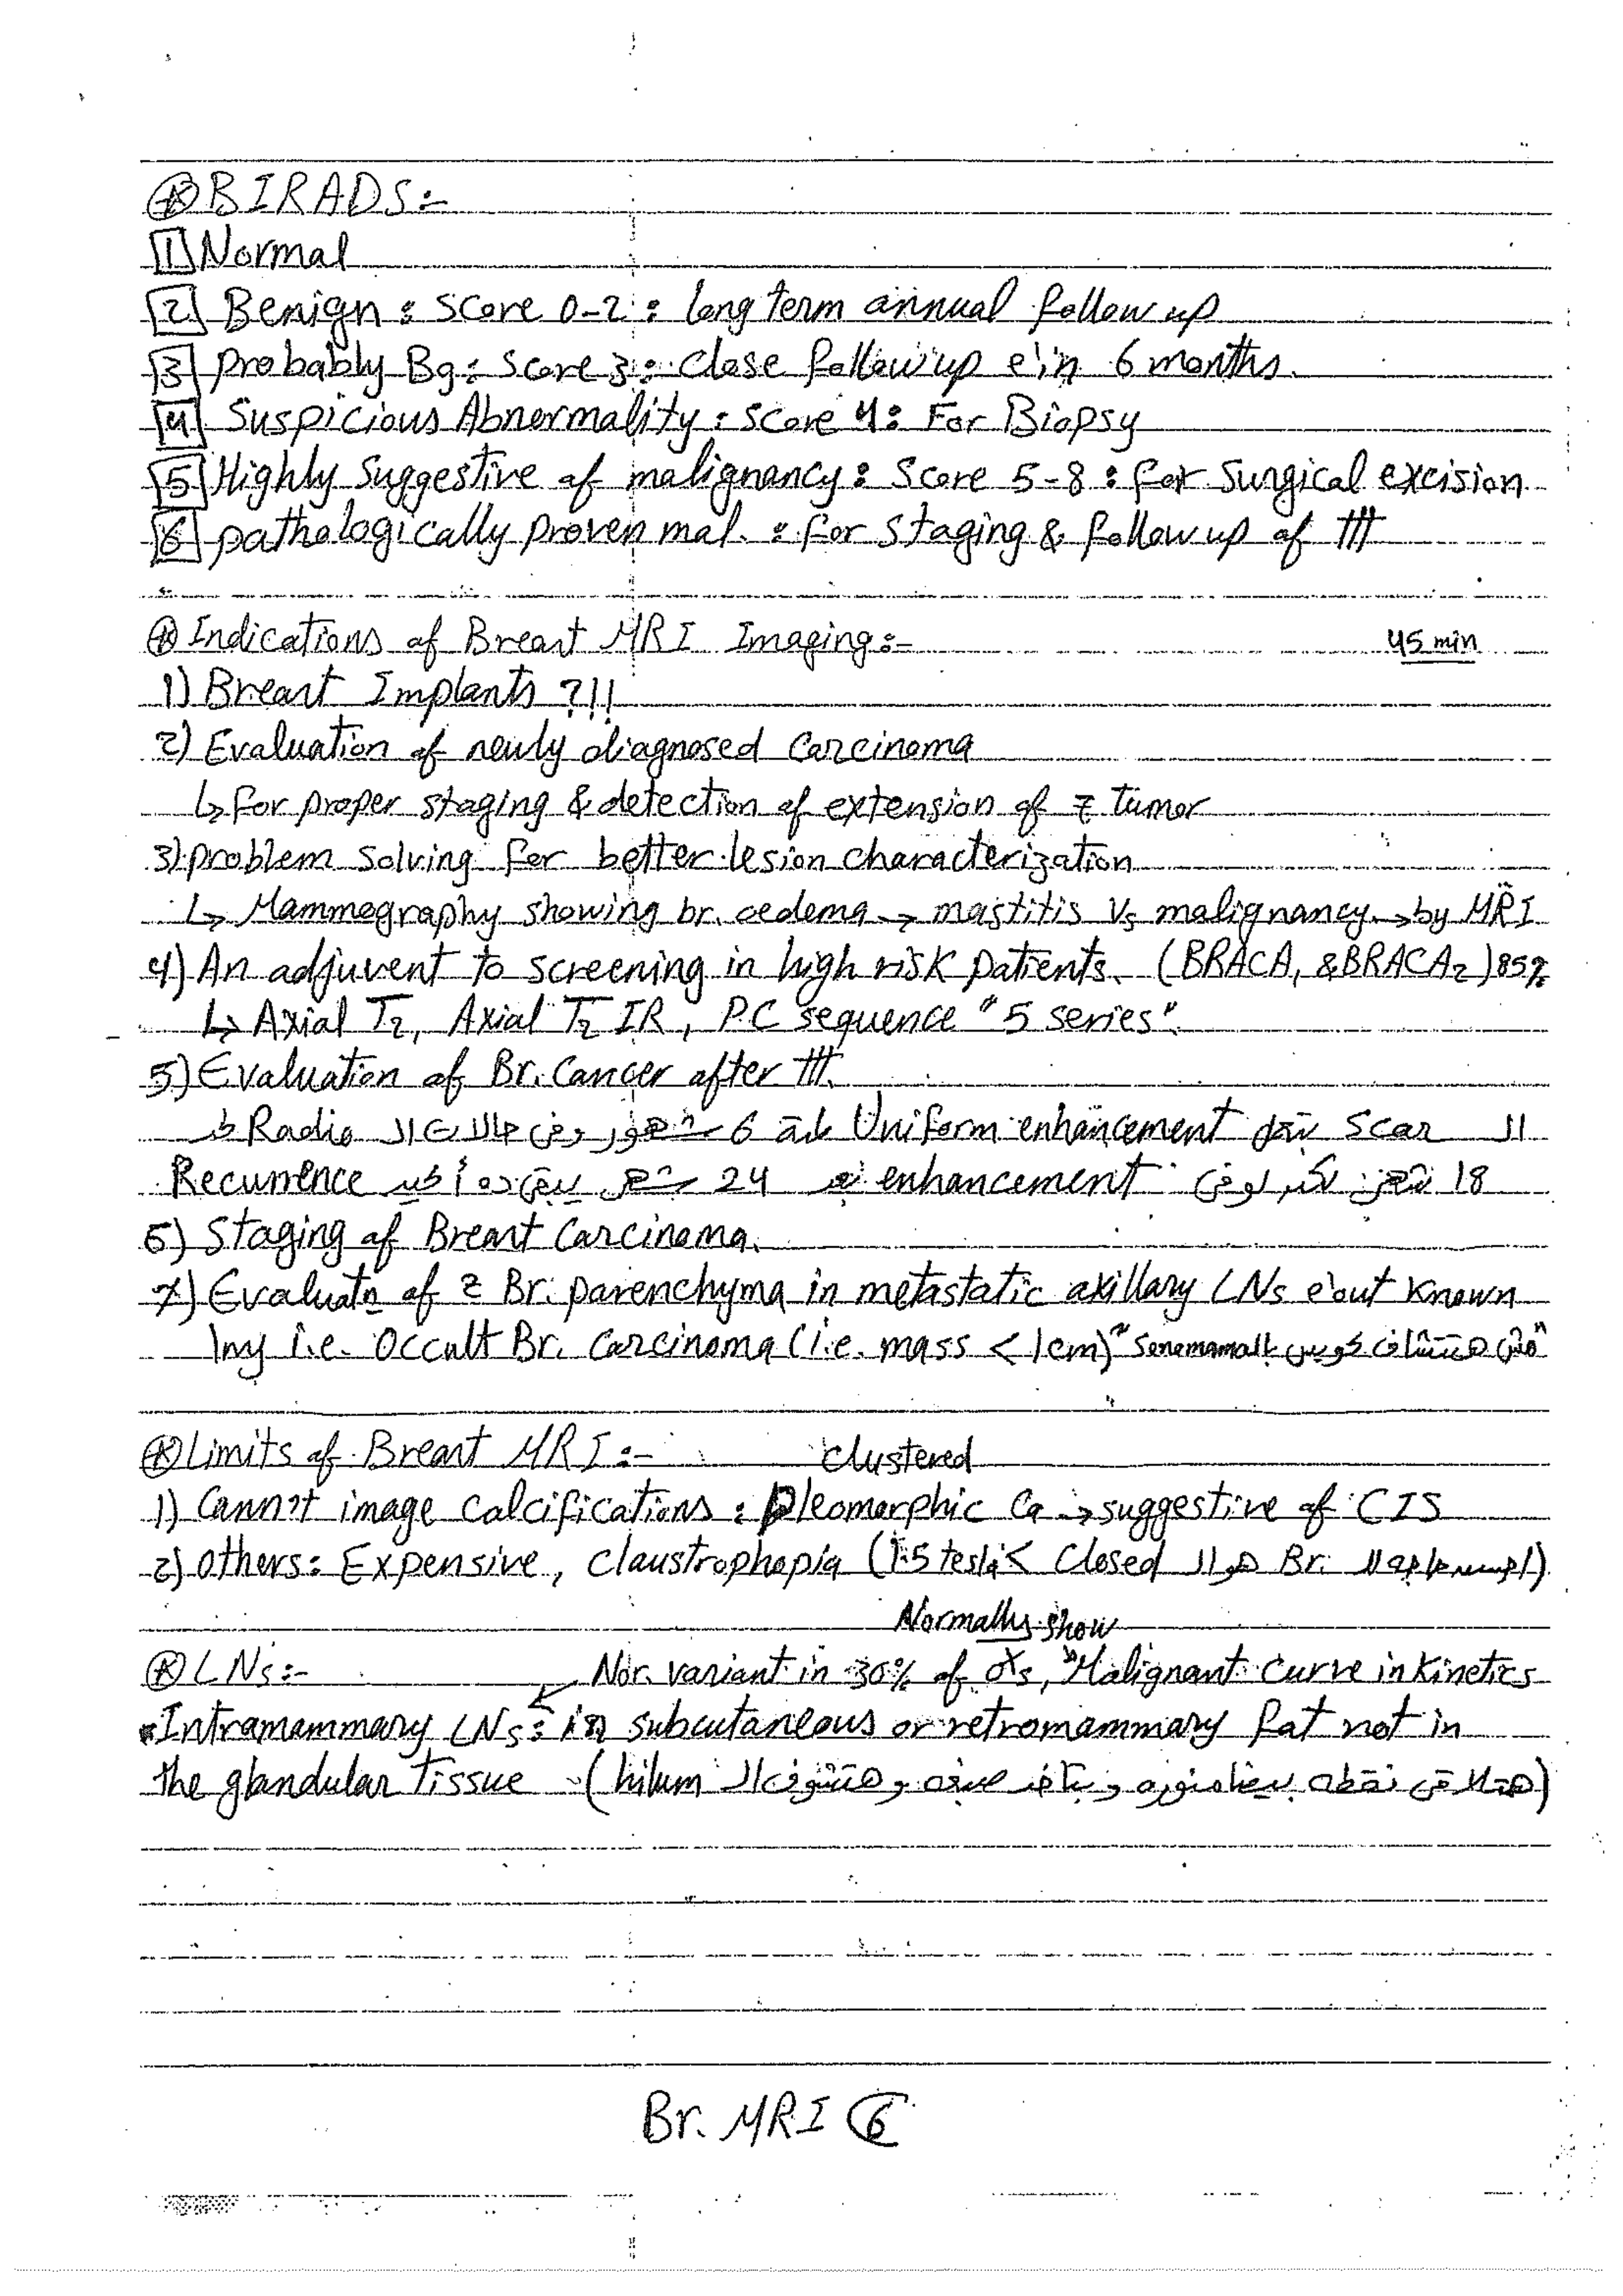 ⊛ BIRADS:-
1 Normal
2 Benign : score 0-2 : long term annual follow up
3 probably Bg : score 3 : close follow up e'in 6 months.
4 Suspicious Abnormality : score 4 : For Biopsy
5 Highly suggestive of malignancy : score 5-8 : for surgical excision
6 pathologically proven mal. : for staging & follow up of ttt
⊛ Indications of Breast MRI Imaging:- 45 min
1) Breast Implants ?!!
2) Evaluation of newly diagnosed carcinoma
↳ for proper staging & detection of extension of tumor
3) problem solving for better lesion characterization
↳ Mammography showing br. oedema → mastitis Vs malignancy → by MRI
4) An adjuvent to screening in high risk patients. (BRACA1 & BRACA2) 85%
↳ Axial T2, Axial T2 IR, P.C sequence "5 series".
5) Evaluation of Br. Cancer after ttt.
ال scar Uniform enhancement لمدة 6 شهور وفي حالات ال Radio
18 شهر enhancement بعد 24 شهر يبقى ده أكيد Recurrence
6) Staging of Breast Carcinoma.
7) Evaluatn of Br. parenchyma in metastatic axillary LNs e'out known
1ry i.e. Occult Br. Carcinoma (i.e. mass < 1cm) "مش هتتشاف كويس بال Sonomamo"
⊛ Limits of Breast MRI:- clustered
1) Cannot image calcifications : pleomorphic Ca → suggestive of CIS
2) Others: Expensive, claustrophopia (1.5 tesla < Closed هو ال Br. لل)
Normally show
⊛ LNs:- Nor. variant in 30% of ♂s, "Malignant curve in kinetics
Intramammary LNs : in subcutaneous or retromammary fat not in
the glandular tissue (hilum وهتشوف ال)
Br. MRI 6